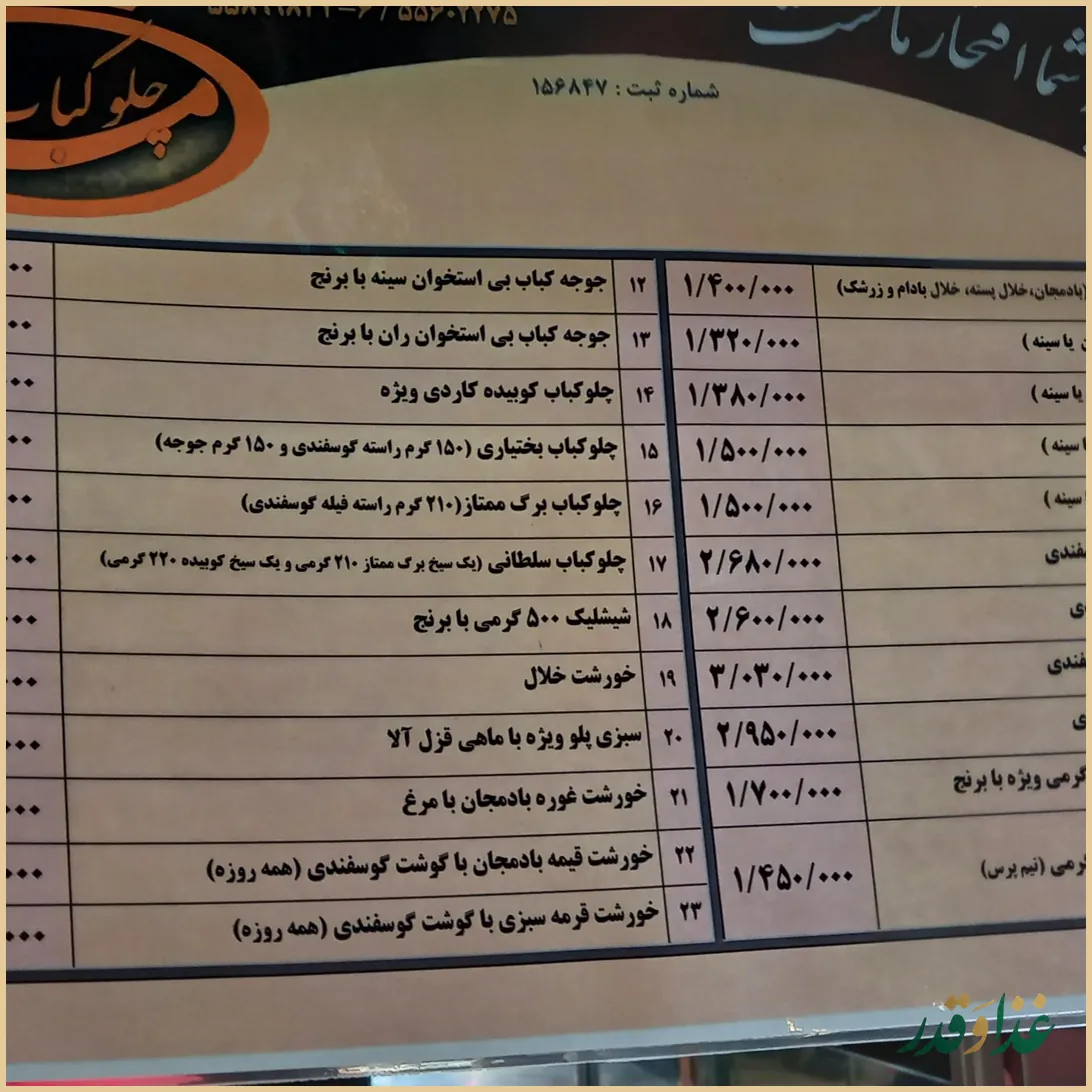 شما افتخار ماست
چلو کباب
شماره ثبت : ۱۵۶۸۴۷
(بادمجان،خلال پسته، خلال بادام و زرشک) ۱/۴۰۰/۰۰۰
یا سینه ) ۱/۳۲۰/۰۰۰
یا سینه ) ۱/۳۸۰/۰۰۰
سینه ) ۱/۵۰۰/۰۰۰
سینه ) ۱/۵۰۰/۰۰۰
۲/۶۸۰/۰۰۰
۲/۶۰۰/۰۰۰
۳/۰۳۰/۰۰۰
۲/۹۵۰/۰۰۰
گرمی ویژه با برنج ۱/۷۰۰/۰۰۰
گرمی (نیم پرس) ۱/۴۵۰/۰۰۰
۱۲ جوجه کباب بی استخوان سینه با برنج
۱۳ جوجه کباب بی استخوان ران با برنج
۱۴ چلوکباب کوبیده کاردی ویژه
۱۵ چلوکباب بختیاری (۱۵۰ گرم راسته گوسفندی و ۱۵۰ گرم جوجه)
۱۶ چلوکباب برگ ممتاز(۲۱۰ گرم راسته فیله گوسفندی)
۱۷ چلوکباب سلطانی (یک سیخ برگ ممتاز ۲۱۰ گرمی و یک سیخ کوبیده ۲۲۰ گرمی)
۱۸ شیشلیک ۵۰۰ گرمی با برنج
۱۹ خورشت خلال
۲۰ سبزی پلو ویژه با ماهی قزل آلا
۲۱ خورشت غوره بادمجان با مرغ
۲۲ خورشت قیمه بادمجان با گوشت گوسفندی (همه روزه)
۲۳ خورشت قرمه سبزی با گوشت گوسفندی (همه روزه)
غذا و قدر